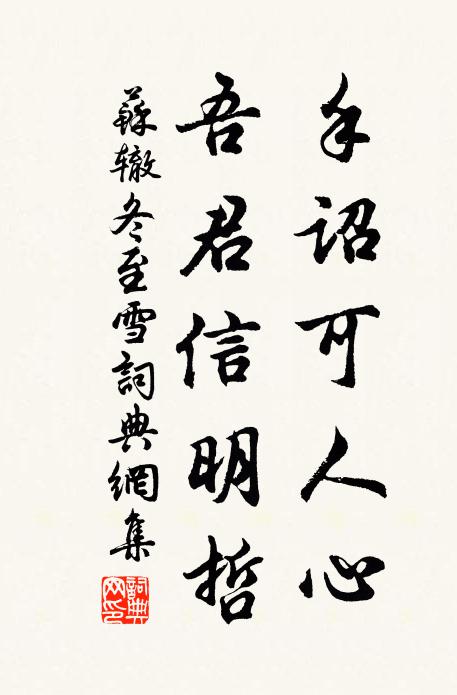 手詔可人心
吾君信明哲
蘇辙冬至雪詞典網集
詞典網印